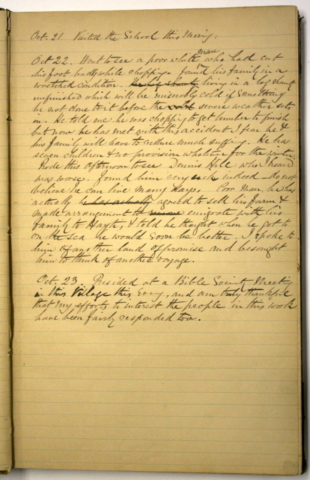 Oct. 21. Visited the School this Morng.
Oct 22. Went to see a poor white man who had cut
his foot badly while chopping. Found his family in a
wretched condition. living in a log shanty
unfinished which will be miserably cold if something
be not done to it before the severe weather set
in. He told me he was chopping to get lumber to finish
but now he has met with this accident I fear he &
his family will have to endure much suffering. He has
seven children & no provision whatever for the winter
Rode this afternoon to see Dennis Hill who I heard
was worse. Found him very sick indeed - do not
believe he can live many days. Poor man, he has
actually agreed to sell his farm &
made arrangement to emigrate with his
family to Hayti. I told he thought when he got it
on the sea he would soon be better. I spoke to
him of another land of promise and besought
him to think of another voyage.
Oct. 23 Presided at a Bible Society Meeting
in this Village this Eveng, and am truly thankful
that my efforts to interest the people in this work
have been fairly responded too.